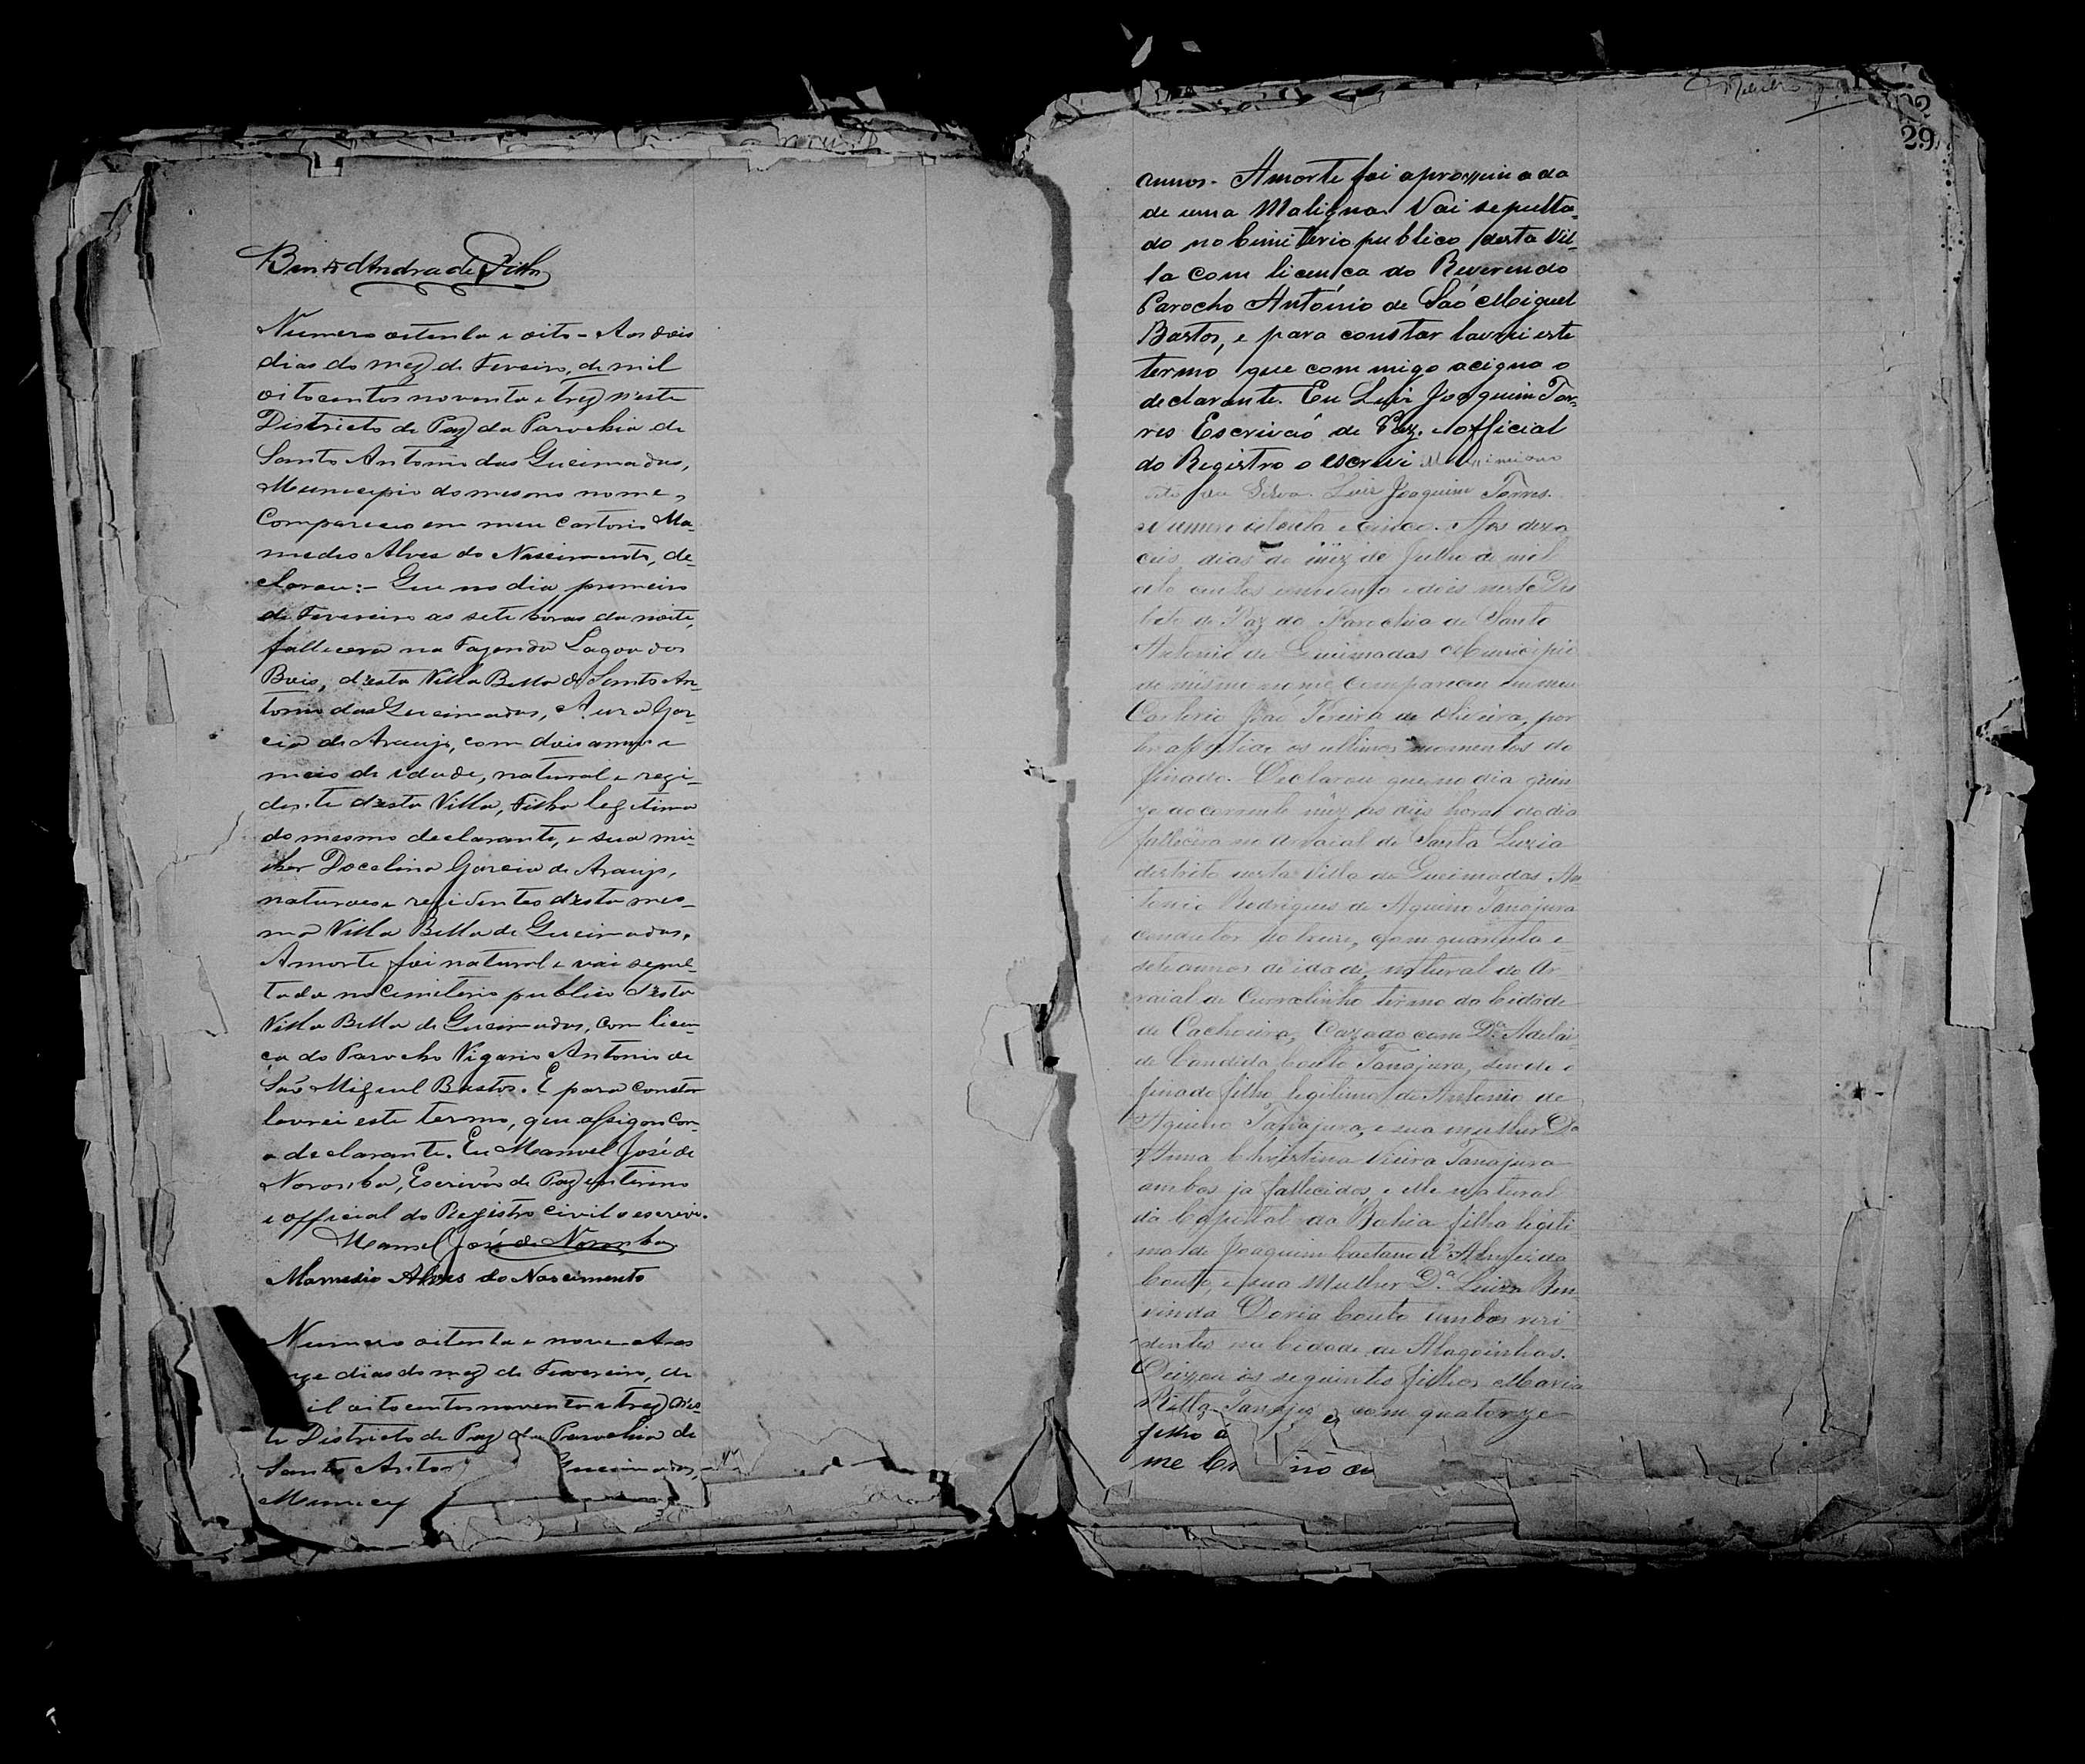 Bento d'Andrade Filho
Numero oitenta e oito - Aos dois
dias do mez de Fevreiro, de mil
oitocentos noventa e trez n'este
Districto de Paz da Parochia de
Santo Antonio das Queimadas,
Municipio do mesmo nome,
Compareceo em meu Cartorio Ma-
medio Alves do Nascimento, de-
clarou:- Que no dia primeiro
de Fevereiro as sete horas da noite,
fallecera na Fazenda Lagoa dos
Bois, d'esta Villa Bella de Santo An-
tonio das Queimadas, Gar-
cia de Araujo, com dois annos e
meio de idade, natural e rezi-
dente d'esta Villa, Filha legitima
do mesmo declarante, e sua mu-
lher Docelina Garcia de Araujo,
naturaes e rezidentes d'esta mes-
ma Villa Bella de Queimadas.
A morte foi natural e vai sepul-
tada no Cemiterio publico d'esta
Villa Bella de Queimadas, com licen-
ça do Parocho Vigario Antonio de
São Miguel Bastos. E para constar
lavrei este termo, que assigno com
o declarante. Eu Manoel José de
Noronha, Escrivão de Paz interino
e official do Registro civil o escrevi.
Manoel José de Noronha
Mamedio Alves do Nascimento
Numero oitenta e nove - Aos
dias do mez de Fevereiro, de
mil oitocentos noventa e trez n'es-
te Districto de Paz da Parochia de
Santo Anto Queimadas,
Municip
29
annos. A morte foi aproxximada
de uma Maligna. Vai sepulta-
do no Cemiterio publico desta Vil-
la com licença do Reverendo
Parocho António de São Miguel
Bastos, e para constar lavrei este
termo que commigo acigna o
declarante. Eu Luis Joaquim Tor-
res Escrivão de Paz. e official
do Registro o escrevi Maximiano
da Silva. Luis Joaquim Torres.
Numero oitenta e cinco. Aos deza
ceis dias do mez de Julho de mil
oito centos noventa e dois neste Dis
tito de Paz da Parochia de Santo
Antonio de Queimadas Municipio
do mismo nome compareceu em meu
Cartorio João Pereira de Oliveira, por
ter assistido os ultimos momentos do
finado. Declarou que no dia quin
ze do corrente mez as dois horas do dia
fallecera no arraial de Santa Luzia
distrito desta Villa de Queimadas An
tonio Rodrigues de Aquino Tanajura
condutor do trem, com quarenta e
sete annos de idade, natural do Ar
raial de Curralinho termo da Cidade
de Cachoeira, Cazado com D.ª Adelai-
de Candida Couto Tanajura, sendo o
finado filho legitimo de Antonio de
Aquino Tanajura, e sua mulher D.ª
Anna Christina Vieira Tanajura
ambos ja fallecidos, e ella natural
da Capital da Bahia filha legiti
ma de Joaquim Caetano d'Almeida
Couto, e sua Mulher D.ª Luiza Ben
vinda Doria Couto ambos rezi-
dentes na Cidade de Alagoinhas.
Deixou os seguintes filhos Maria
Ritta com quatorze
filho a
me no